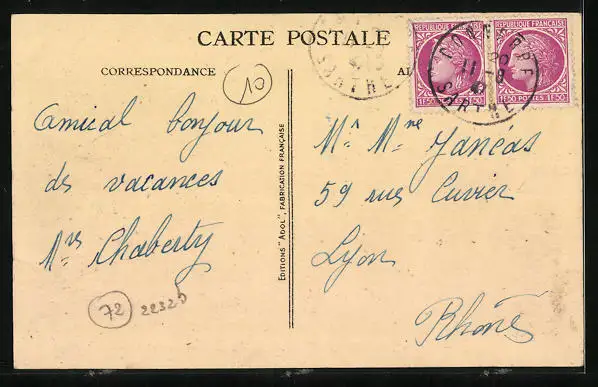 CARTE POSTALE
CORRESPONDANCE
10
Amical bonjour
des vacances
Chaberty
72
22325
EDITIONS "ADOL", FABRICATION FRANÇAISE
REPUBLIQUE FRANÇAISE
1F50 POSTES 1F50
REPUBLIQUE FRANÇAISE
1F50 POSTES 1F50
CONNERRE
SARTHE
SARTHE
Mr Mme Jancás
59 rue Cuvier
Lyon
Rhône